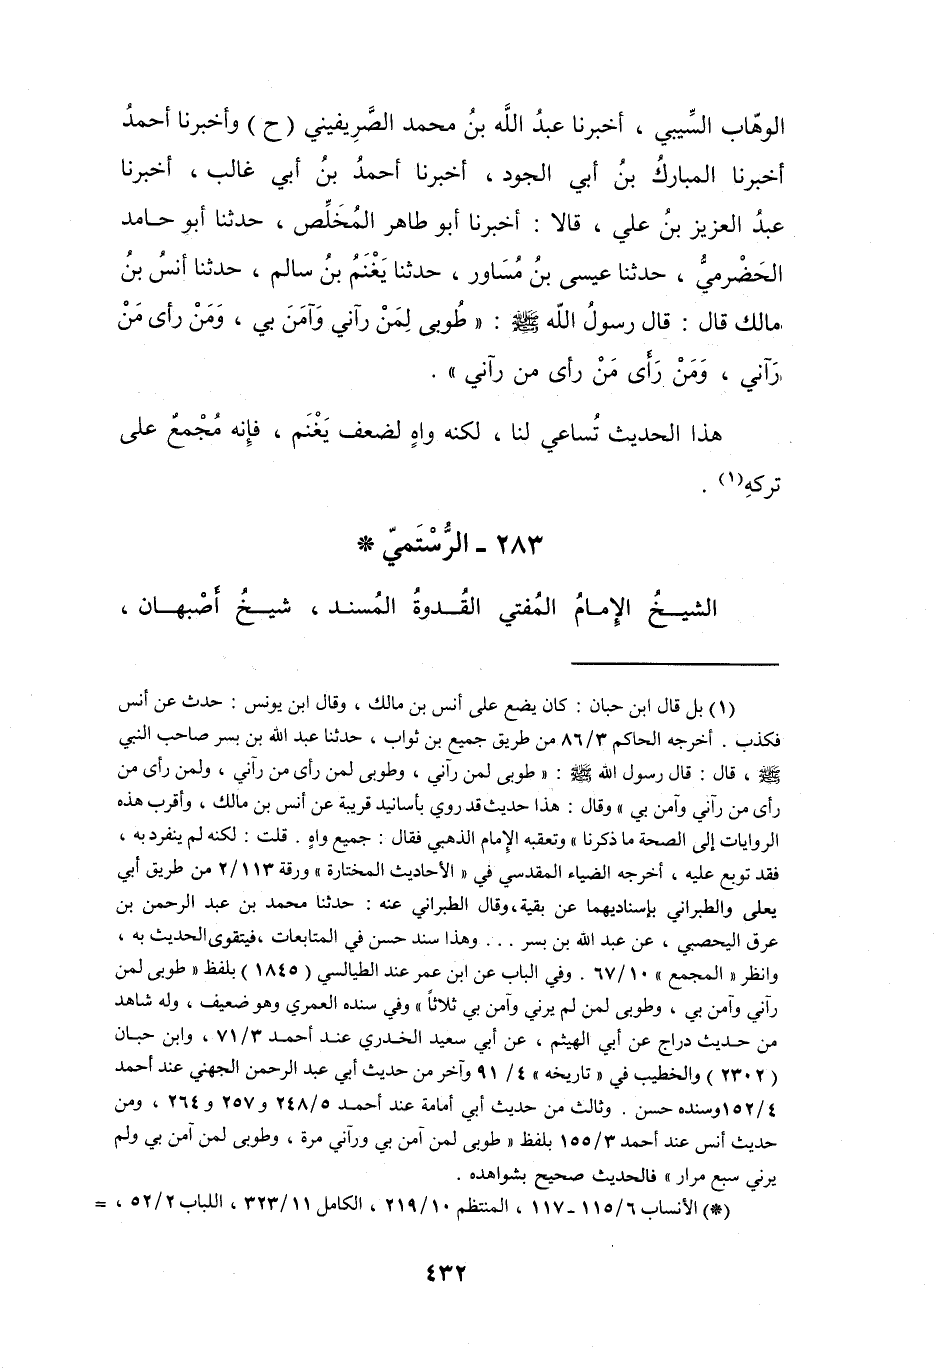 الوهّاب السِّيبي ، أخبرنا عبدُ اللَّه بنُ محمد الصَّرِيفيني ( ح ) وأخبرنا أحمدُ
أخبرنا المباركُ بنُ أبي الجود ، أخبرنا أحمدُ بنُ أبي غالب ، أخبرنا
عبدُ العزيز بنُ علي ، قالا : أخبرنا أبو طاهر المُخَلِّص ، حدثنا أبو حامد
الحَضْرميُّ ، حدثنا عيسى بنُ مُسَاور ، حدثنا يَغْنَمُ بنُ سالم ، حدثنا أنسُ بنُ
مالك قال : قال رسولُ اللّه ﷺ : « طُوبى لِمَنْ رآني وَآمَنَ بي ، وَمَنْ رأى مَنْ
رَآني ، وَمَنْ رَأَى مَنْ رأى من رآني » .
هذا الحديث تُساعي لنا ، لكنه واهٍ لضعف يَغْنَم ، فإِنه مُجْمعٌ على
تركهِ(١) .
٢٨٣ ـ الرُّسْتَميّ *
الشيـخُ الإِمـامُ المُفتي القُـدوةُ المُسنـد ، شيـخُ أَصْبهـان ،
(١) بل قال ابن حبان : كان يضع على أنس بن مالك ، وقال ابن يونس : حدث عن أنس
فكذب . أخرجه الحاكم ٨٦/٣ من طريق جميع بن ثواب ، حدثنا عبد الله بن بسر صاحب النبي
ﷺ ، قال : قال رسول الله ﷺ : « طوبى لمن رآني ، وطوبى لمن رأى من رآني ، ولمن رأى من
رأى من رآني وآمن بي » وقال : هذا حديث قد روي بأسانيد قريبة عن أنس بن مالك ، وأقرب هذه
الروايات إلى الصحة ما ذكرنا » وتعقبه الإِمام الذهبي فقال : جميع واهٍ . قلت : لكنه لم ينفرد به ،
فقد توبع عليه ، أخرجه الضياء المقدسي في « الأحاديث المختارة » ورقة ٢/١١٣ من طريق أبي
يعلى والطبراني بإسناديهما عن بقية،وقال الطبراني عنه : حدثنا محمد بن عبد الرحمن بن
عرق اليحصبي ، عن عبد الله بن بسر . . . وهذا سند حسن في المتابعات ،فيتقوى الحديث به ،
وانظر « المجمع » ٦٧/١٠ . وفي الباب عن ابن عمر عند الطيالسي ( ١٨٤٥ ) بلفظ « طوبى لمن
رآني وآمن بي ، وطوبى لمن لم يرني وآمن بي ثلاثاً » وفي سنده العمري وهو ضعيف ، وله شاهد
من حـديث دراج عن أبي الهيثم ، عن أبي سعيد الخدري عنـد أحمـد ٧١/٣ ، وابن حبـان
( ٢٣٠٢ ) والخطيب في « تاريخه » ٤/ ٩١ وآخر من حديث أبي عبد الرحمن الجهني عند أحمد
١٥٢/٤وسنده حسن . وثالث من حديث أبي أمامة عند أحمـد ٢٤٨/٥ و ٢٥٧ و ٢٦٤ ، ومن
حديث أنس عند أحمد ١٥٥/٣ بلفظ « طوبى لمن آمن بي ورآني مرة ، وطوبى لمن آمن بي ولم
يرني سبع مرار » فالحديث صحيح بشواهده .
(*) الأنساب ١١٥/٦ ـ ١١٧ ، المنتظم ٢١٩/١٠ ، الكامل ٣٢٣/١١ ، اللباب ٥٢/٢ ، =
٤٣٢